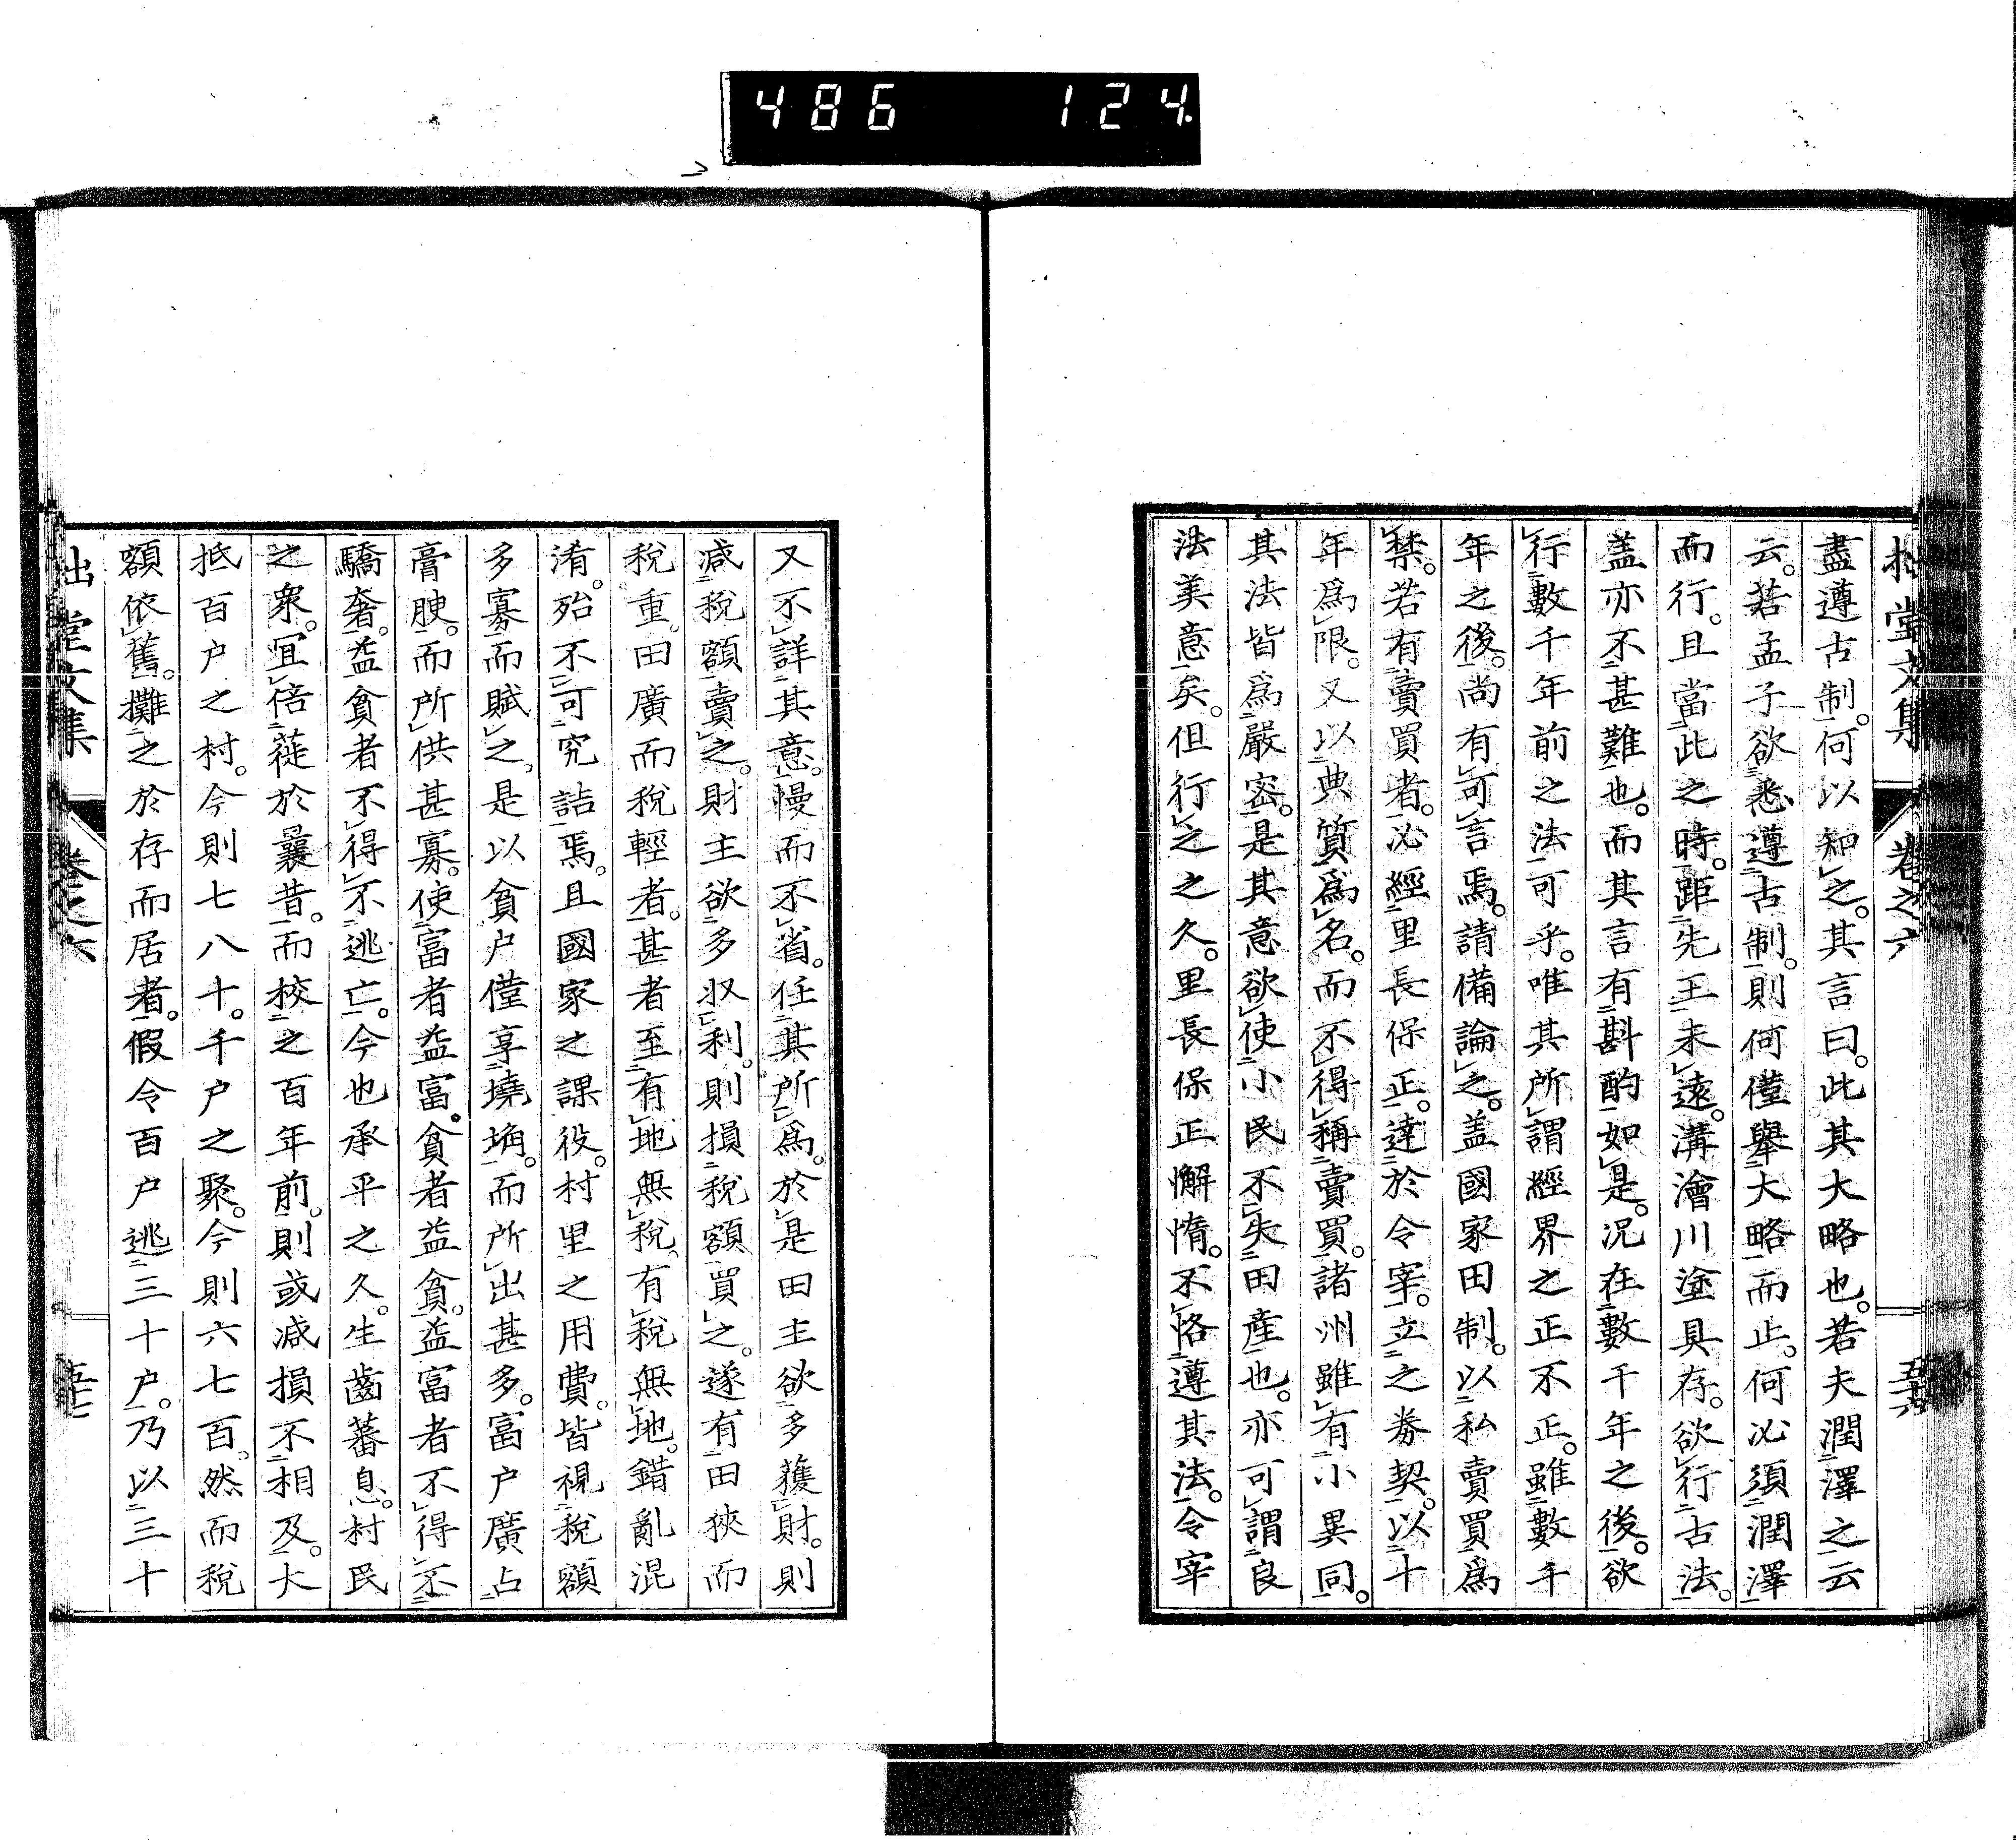 486 124
拙堂文集 卷之六 五十六
盡遵古制。何以知之。其言曰。此其大略也。若夫潤澤之云
云。若孟子欲悉遵古制。則何僅舉大略而止。何必須潤澤
而行。且當此之時。距先王未遠。溝澮川塗具存。欲行古法。
蓋亦不甚難也。而其言有斟酌如是。況在數千年之後。欲
行數千年前之法可乎。唯其所謂經界之正不正。雖數千
年之後。尚有可言焉。請備論之。蓋國家田制。以私賣買爲
禁。若有賣買者。必經里長保正。達於令宰。立之券契。以十
年爲限。又以典質爲名。而不得稱賣買。諸州雖有小異同。
其法皆爲嚴密。是其意欲使小民不失田產也。亦可謂良
法美意矣。但行之之久。里長保正懈惰。不恪遵其法。令宰
又不詳其意。慢而不省。任其所爲。於是田主欲多獲財。則
減稅額賣之。財主欲多収利。則損稅額買之。遂有田狹而
稅重。田廣而稅輕者。甚者至有地無稅。有稅無地。錯亂混
淆。殆不可究詰焉。且國家之課役。村里之用費。皆視稅額
多寡而賦之。是以貧戶僅享墝埆。而所出甚多。富戶廣占
膏腴。而所供甚寡。使富者益富。貧者益貧。益富者不得不
驕奢。益貧者不得不逃亡。今也承平之久。生齒蕃息。村民
之衆。宜倍蓰於曩昔。而校之百年前。則或減損不相及。大
抵百戶之村。今則七八十。千戶之聚。今則六七百。然而稅
額依舊。攤之於存而居者。假令百戶逃三十戶。乃以三十
拙堂文集 卷之六 五十七